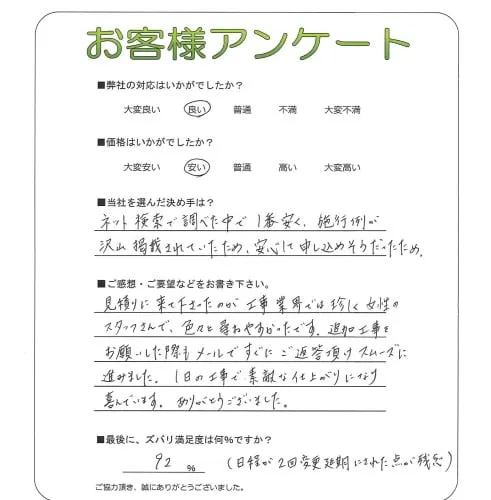 お客様アンケート
■弊社の対応はいかがでしたか？
大変良い 良い 普通 不満 大変不満
■価格はいかがでしたか？
大変安い 安い 普通 高い 大変高い
■当社を選んだ決め手は？
ネット検索で調べた中で1番安く、施行例が
沢山掲載されていたため、安心して申し込めそうだったため。
■ご感想・ご要望などをお書き下さい。
見積りに来て下さったのが工事業界では珍しく女性の
スタッフさんで、色々と尋ねやすかったです。追加工事を
お願いした際もメールですぐにご返答頂けスムーズに
進みました。1日の工事で素敵な仕上がりになり
喜んでいます。ありがとうございました。
■最後に、ズバリ満足度は何％ですか？
92 ％ (日程が2回変更延期にされた点が残念)
ご協力頂き、誠にありがとうございました。